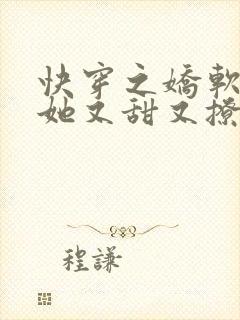 快穿之嬌軟
她又甜又撩
程謙